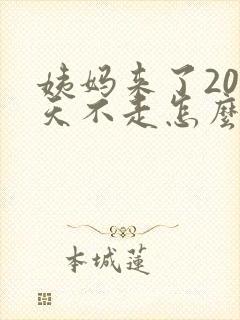 姨妈来了20
天不走怎麼
本城蓮